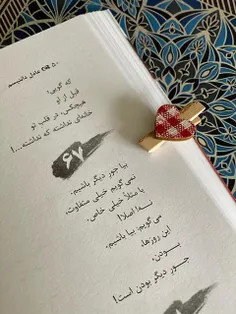 ۵۰ عادل دانتیسم
که گویی؛
قبل از او
هیچکس، در قلب تو
خانه‌ای نداشته که نداشته...!
۶۷
بیا جور دیگر باشیم.
نمی‌گویم خیلی متفاوت،
یا مثلاً خیلی خاص.
نــه! اصلا!
می‌گویم: بیا باشیم.
این روزها،
بــودن،
جــور دیگر بودن است!